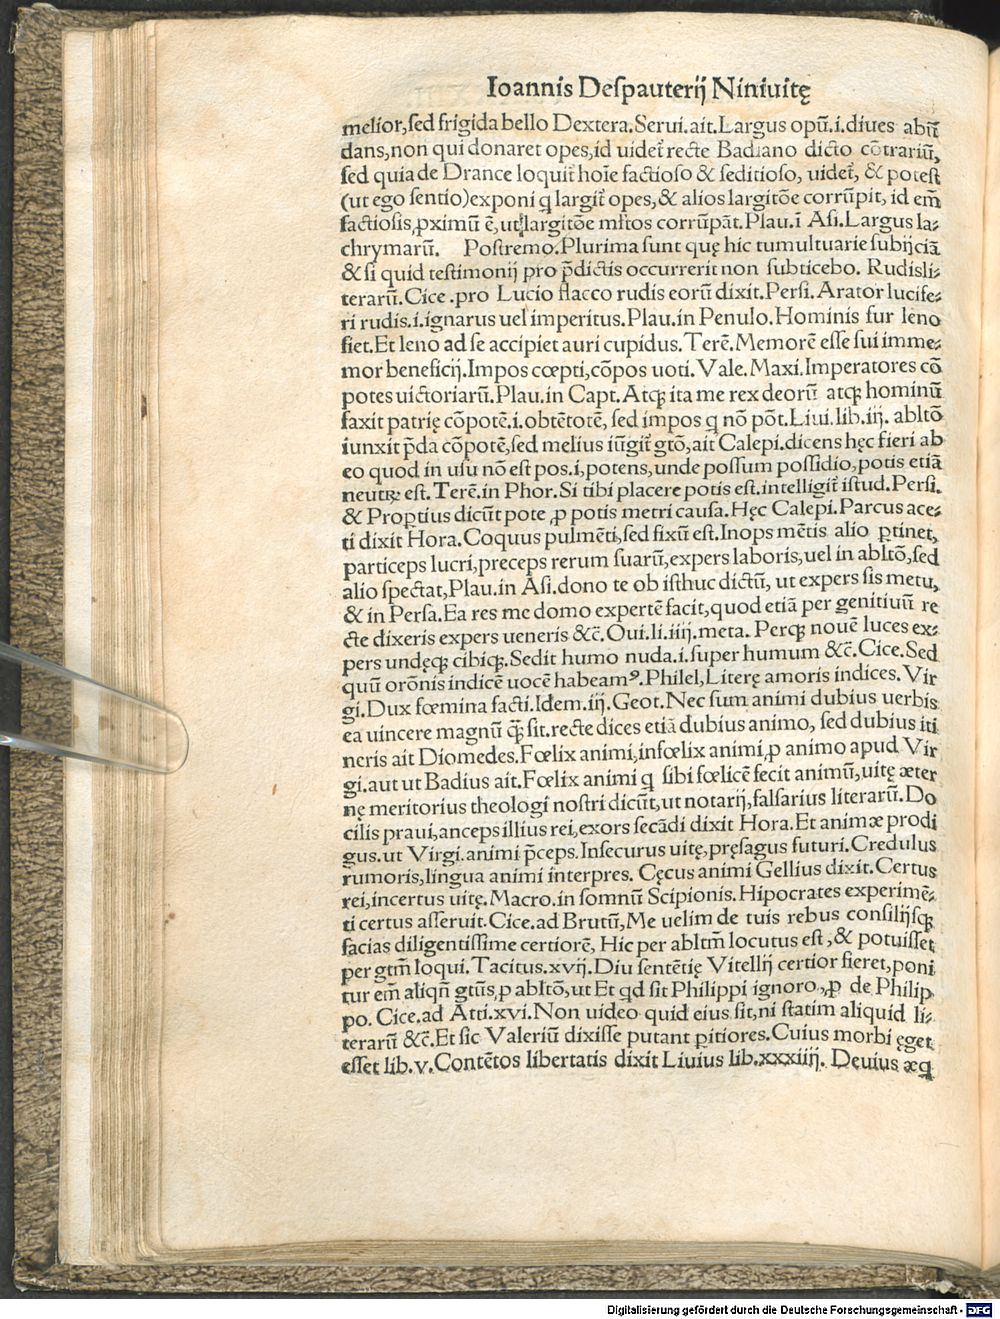 Ioannis Deſpauterij Niniuitę
melior,ſed frigida bello Dextera.Serui.ait.Largus opū.i.diues abū
dans,non qui donaret opes,id uidet᷑ recte Badiano dicto cōtrariū,
ſed quia de Drance loquit᷑ hoīe factioſo & ſeditioſo, uidet᷑, & poteſt
(ut ego ſentio)exponi ꝗ largit᷑ opes,& alios largitōe corrūpit, id em̄
factioſis,ꝓximū ē,ut largitōe mľtos corrūpāt.Plau.ī Aſi.Largus la⸗
chrymarū. Poſtremo.Plurima ſunt quę hic tumultuarie ſubijciā
& ſi quid teſtimonij pro p̄dictis occurrerit non ſubticebo. Rudisli⸗
terarū.Cice.pro Lucio flacco rudis eorū dixit.Perſi.Arator lucife⸗
ri rudis.i.ignarus uel imperitus.Plau.in Penulo.Hominis fur leno
fiet.Et leno ad ſe accipiet auri cupidus.Terē.Memorē eſſe ſui imme⸗
mor beneficij.Impos cœpti,cōpos uoti.Vale.Maxi.Imperatores cō
potes uictoriarū.Plau.in Capt.Atqꝫ ita me rex deorū atqꝫ hominū
faxit patrię cōpotē.i.obtētorē, ſed impos ꝗ nō pōt.Liui.lib.iij. abltō
iunxit p̄da cōpotē,ſed melius iūgit᷑ gtō,ait Calepi.dicens hęc fieri ab
eo quod in uſu nō eſt pos.i,potens,unde poſſum poſſidio,potis etiā
neutꝝ eſt.Terē.in Phor.Si tibi placere potis eſt.intelligit᷑ iſtud.Perſi.
& Proꝑtius dicūt pote ,ꝓ potis metri cauſa.Hęc Calepi.Parcus ace⸗
ti dixit Hora.Coquus pulmēti,ſed fixū eſt.Inops mētis alio ꝑtinet,
particeps lucri,preceps rerum ſuarū,expers laboris,uel in abltō,ſed
alio ſpectat,Plau.in Aſi.dono te ob iſthuc dictū, ut expers ſis metu,
& in Perſa.Ea res me domo expertē facit,quod etiā per genitiuū re
cte dixeris expers ueneris &c̄.Oui.li.iiij.meta. Perqꝫ nouē luces ex⸗
pers undęqꝫ cibiqꝫ.Sedit humo nuda.i.ſuper humum &c̄.Cice.Sed
quū orōnis indicē uocē habeamꝰ.Philel,Literę amoris indices. Vir
gi.Dux fœmina facti.Idem.iij.Geor.Nec ſum animi dubius uerbis
ea uincere magnū ꝗ̄ ſit.recte dices etiā dubius animo, ſed dubius iti
neris ait Diomedes.Fœlix animi,infœlix animi,ꝓ animo apud Vir
gi.aut ut Badius ait.Fœlix animi ꝗ ſibi fœlicē fecit animū,uitę æter
nę meritorius theologi noſtri dicūt,ut notarij,falſarius literarū.Do
cilis praui,anceps illius rei,exors ſecādi dixit Hora.Et animæ prodi
gus.ut Virgi.animi p̄ceps.Inſecurus uitę,pręſagus futuri.Credulus
rumoris,lingua animi interpres. Cęcus animi Gellius dixit.Certus
rei,incertus uitę.Macro.in ſomnū Scipionis.Hipocrates experimē⸗
ti certus aſſeruit.Cice.ad Brutū,Me uelim de tuis rebus conſilijſqꝫ
facias diligentiſſime certiorē, Hic per abltm̄ locutus eſt,& potuiſſet
per gtm̄ loqui.Tacitus.xvij.Diu ſentētię Vitellij certior fieret,poni
tur em̄ aliqn̄ gtūs,ꝓ abltō,ut Et qd ſit Philippi ignoro,,ꝓ de Philip
po. Cice.ad Atti.xvi.Non uideo quid eius ſit,ni ſtatim aliquid li⸗
terarū &c̄.Et ſic Valeriū dixiſſe putant ꝑitiores.Cuius morbi ęger
eſſet lib.v.Contētos libertatis dixit Liuius lib.xxxiiij. Deuius æꝗ
Digitalisierung gefördert durch die Deutsche Forschungsgemeinschaft - DFG